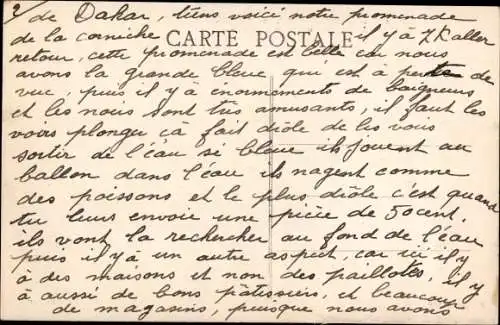 2/ de Dakar, tiens voici notre promenade
de la corniche il y à 7K aller
CARTE POSTALE
retour, cette promenade est belle car nous
avons la grande bleue qui est à perte de
vue, puis il y à enormements de baigneurs
et les nous sont tres amusants, il faut les
voirs plonger ça fait diôle de les vois
sortir de l'éau si bleue ils jouent au
ballon dans l'éau ils nagent comme
des poissons et le plus diôle c'est quand
tu leurs envoie une pièce de 50 cent.
ils vont la rechercher au fond de l'éau
puis il y à un autre aspect, car ici il y
à des maisons et non des paillotes, il y
à aussi de bons pâtissiers, et beaucoup
de magasins, puisque nous avons